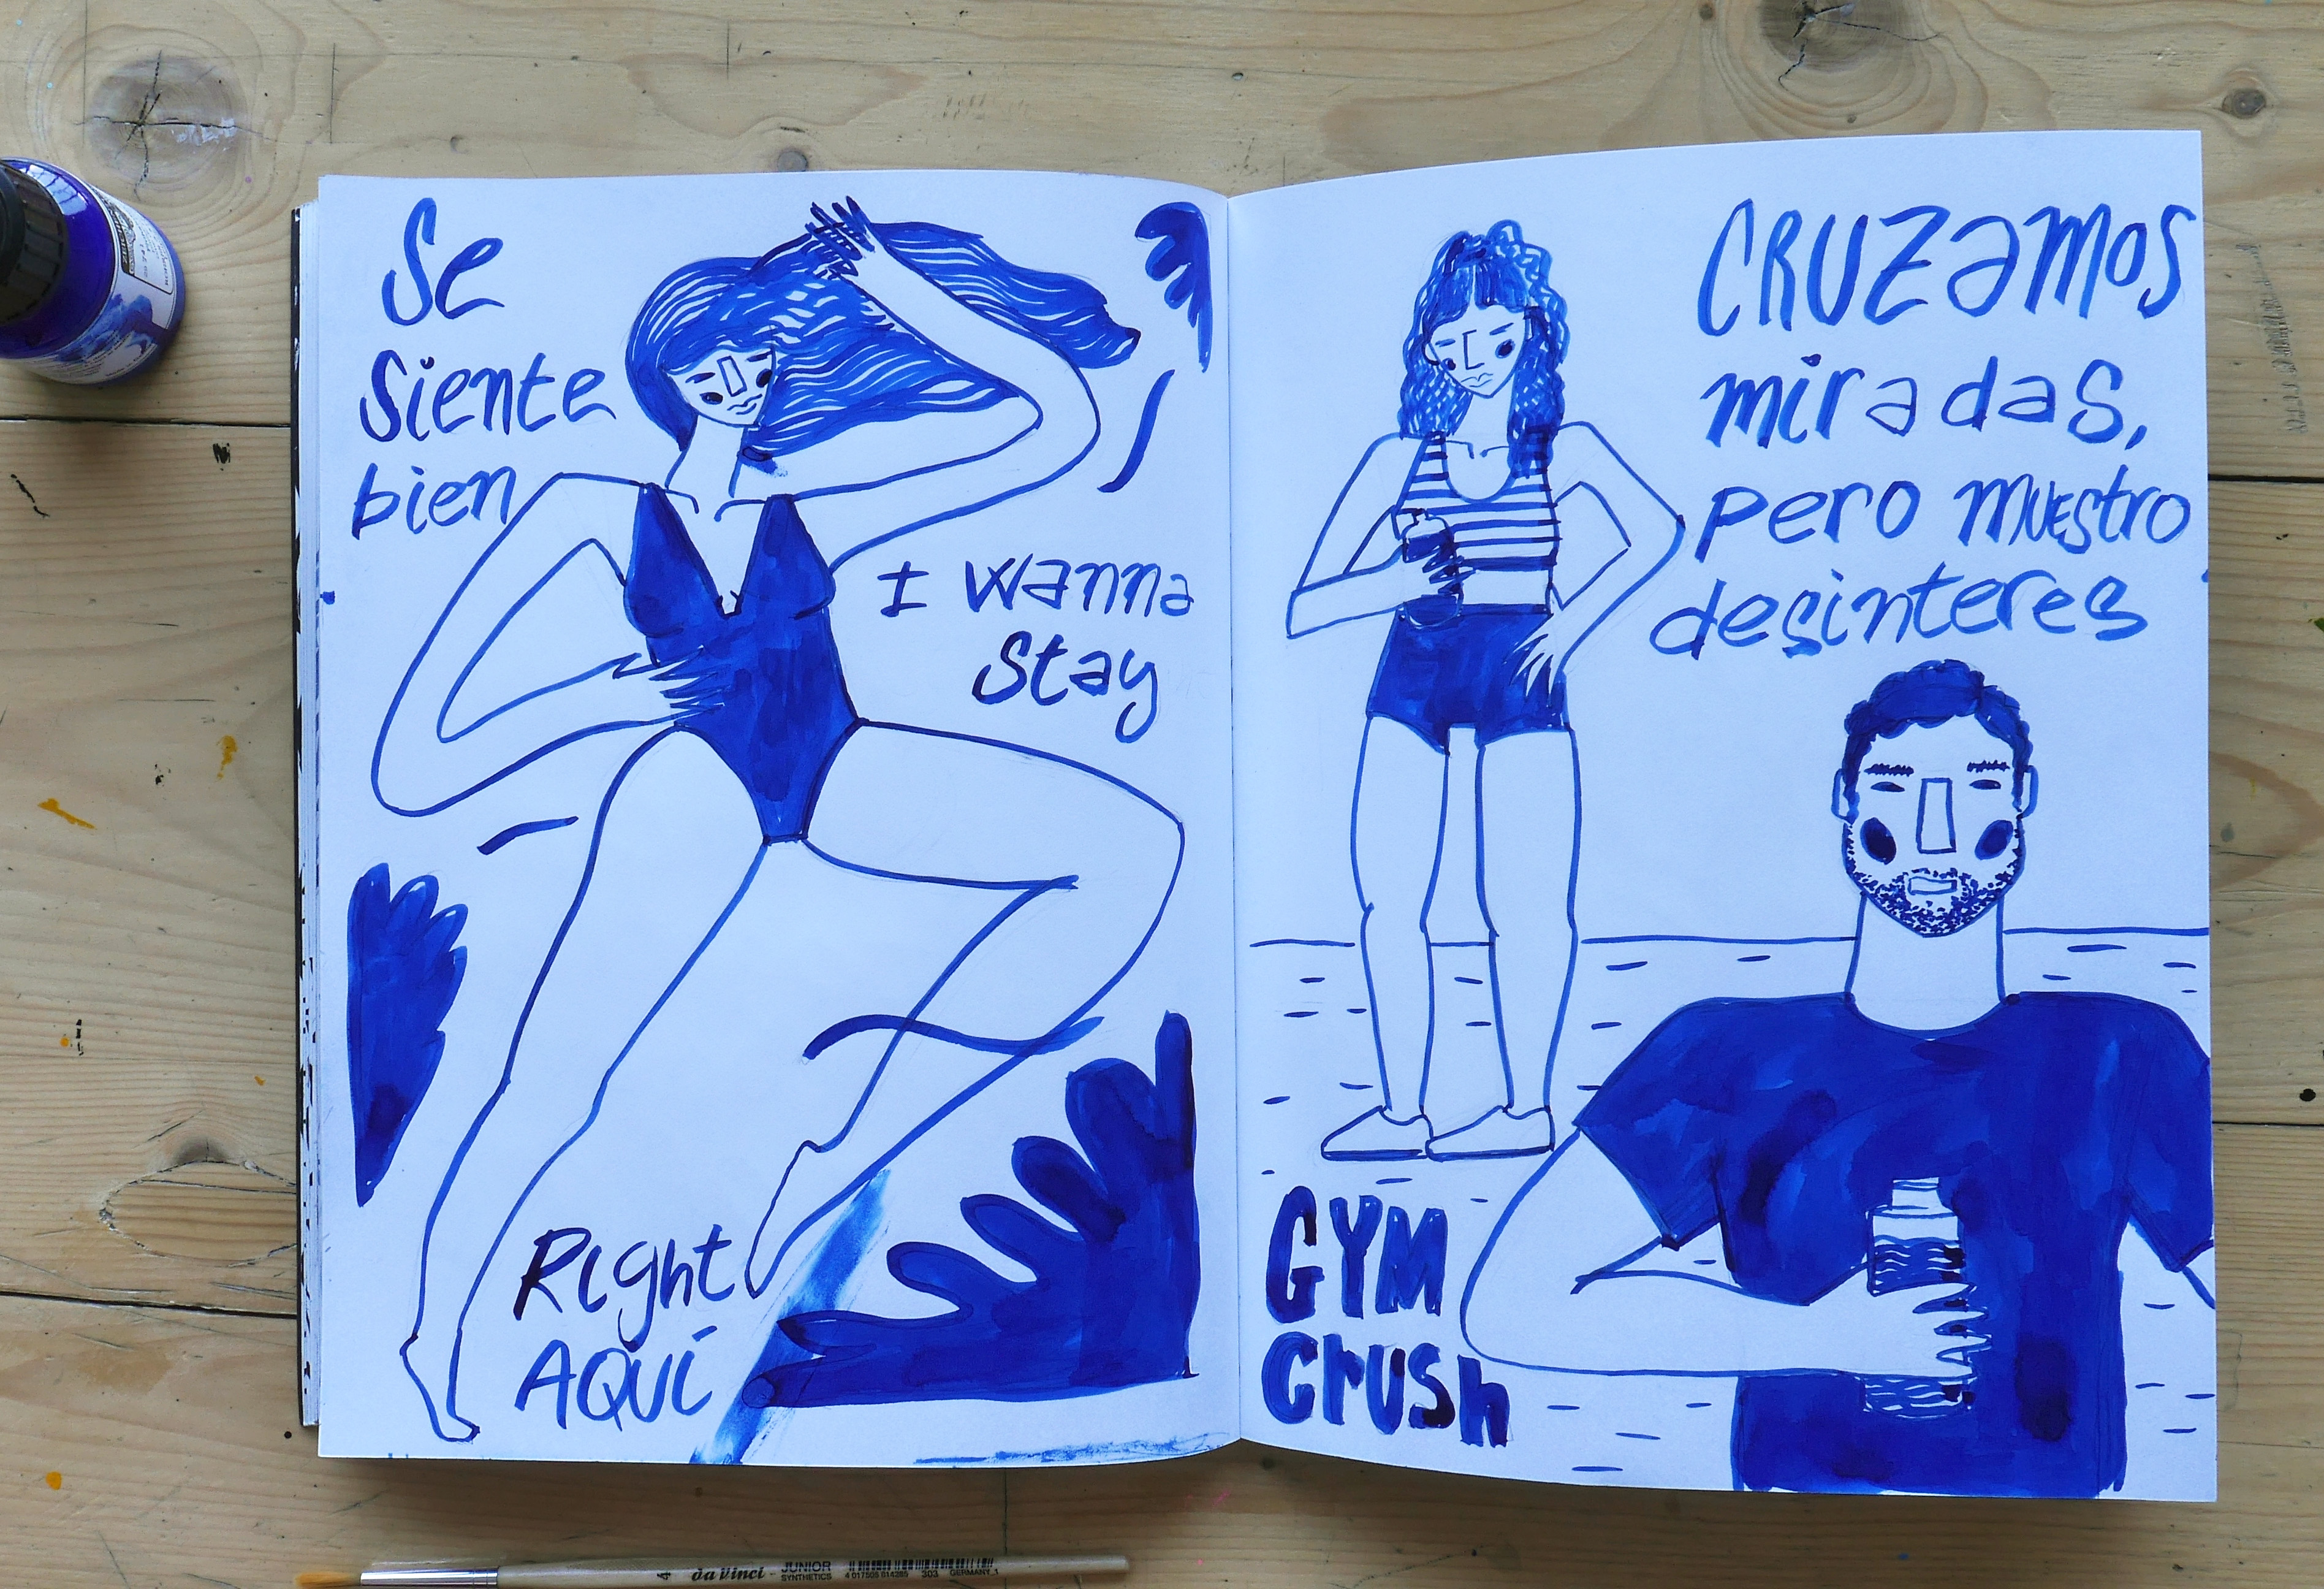 Se
siente
bien
I wanna
stay
Right
AQUÍ
CRUZamos
miradas,
pero muestro
desinteres
GYM
crush
4 da Vinci - JUNIOR
SYNTHETICS
4 017505 014285 303 GERMANY_1